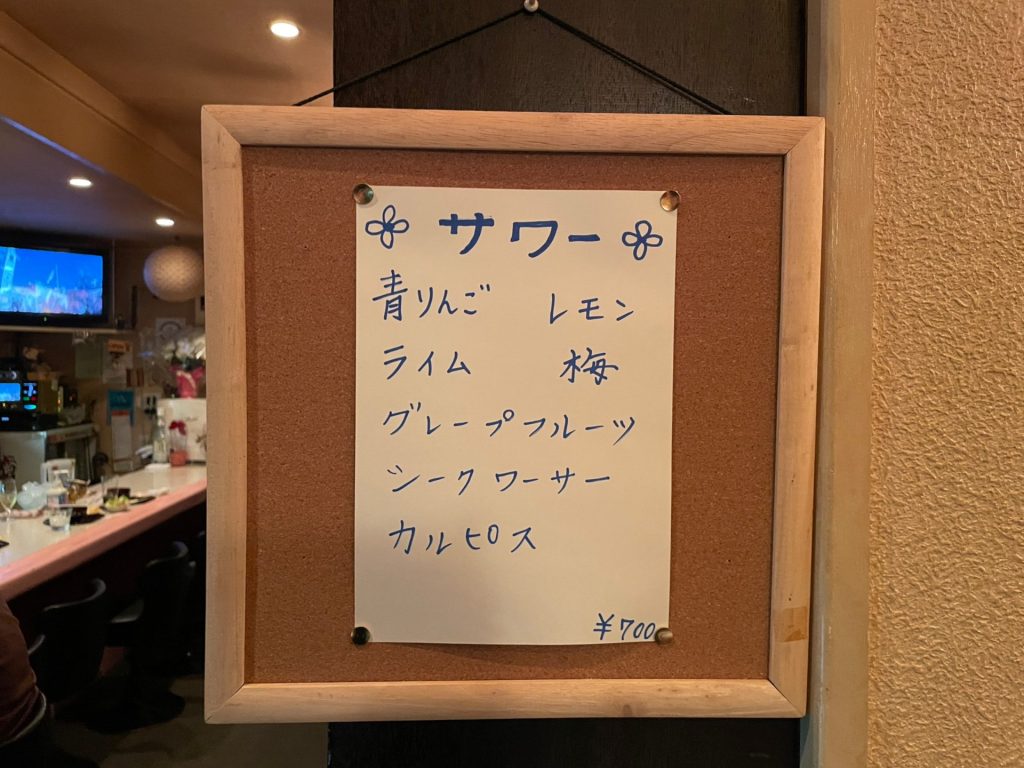 サワー
青りんご レモン
ライム 梅
グレープフルーツ
シークワーサー
カルピス
¥700